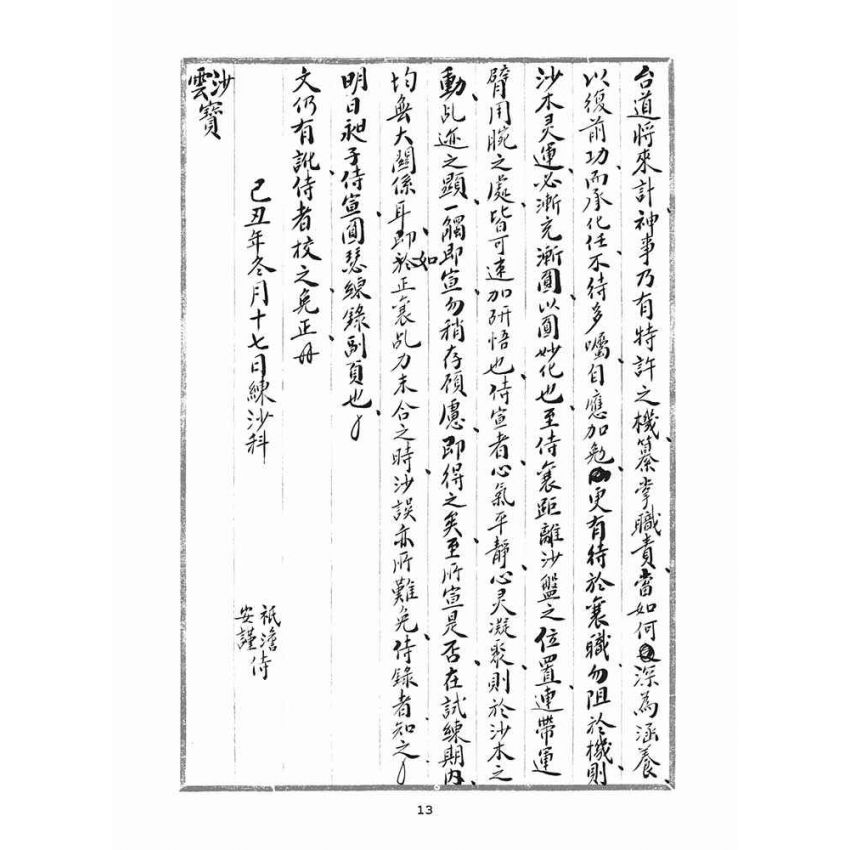 台道將來計神事乃有特許之機纂掌職責當如何深為涵養、
以復前功而承化任不待多囑自應加勉更有待於襄職勿阻於機則、
沙木灵運必漸充漸圓以圓妙化也至侍襄距離沙盤之位置連帶運
臂用腕之處皆可速加研悟也侍宣者心氣平靜心灵凝聚則於沙木之
動乩迹之顯一觸即宣勿稍存顧慮即得之矣至所宣是否在試練期內、
均無大關係耳即如於正襄乩力未合之時沙誤亦所難免侍錄者知之
明日昶子侍宣圓瑟練錄副頁也
文仍有訛侍者校之免正冊
己丑年冬月十七日練沙科
祇澹侍
安謹侍
沙
雲寶
13